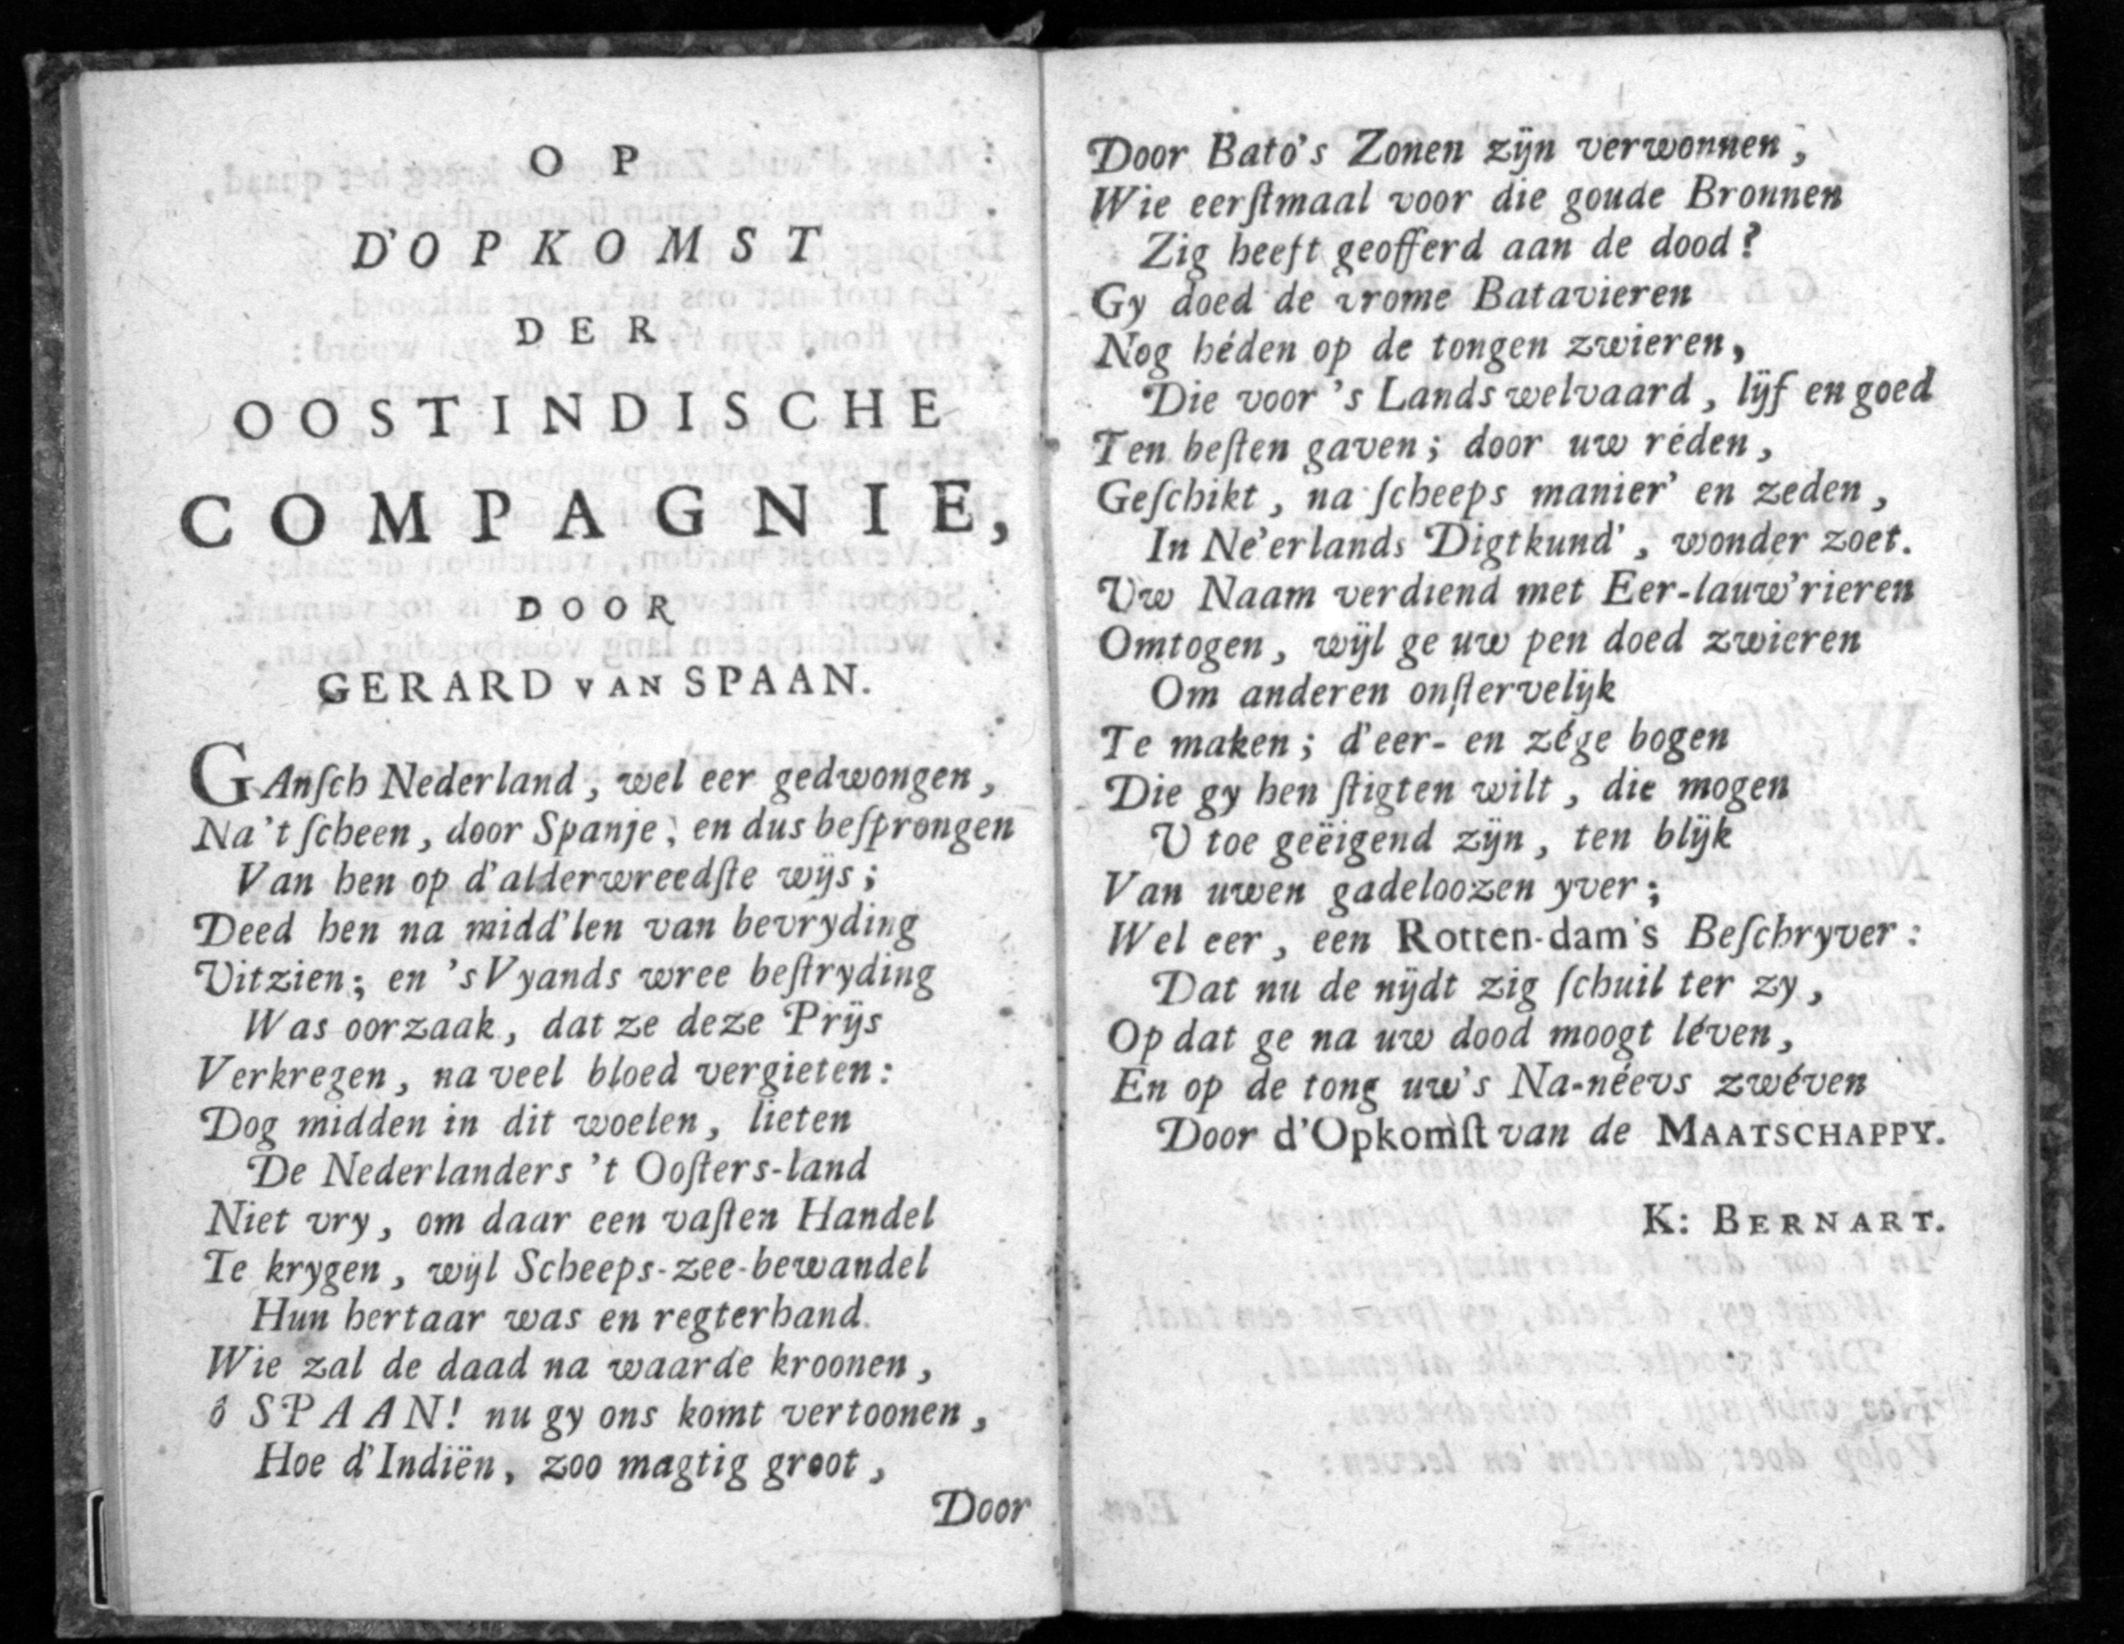 OP
D'OPKOMST
DER
OOSTINDISCHE
COMPAGNIE,
DOOR
GERARD VAN SPAAN.
GAnſch Nederland, wel eer gedwongen,
Na't ſcheen, door Spanje, en dus beſprongen
Van hen op d'alderwreedſte wijs;
Deed hen na midd'len van bevryding
Uitzien; en 's Vyands wree beſtryding
Was oorzaak, dat ze deze Prijs
Verkregen, na veel bloed vergieten:
Dog midden in dit woelen, lieten
De Nederlanders 't Ooſters-land
Niet vry, om daar een vaſten Handel
Te krygen, wijl Scheeps-zee-bewandel
Hun hertaar was en regterhand.
Wie zal de daad na waarde kroonen,
ô SPAAN! nu gy ons komt vertoonen,
Hoe d'Indiën, zoo magtig groot,
Door
Door Bato's Zonen zijn verwonnen,
Wie eerſtmaal voor die goude Bronnen
Zig heeft geofferd aan de dood?
Gy doed de vrome Batavieren
Nog héden op de tongen zwieren,
Die voor 's Lands welvaard, lijf en goed
Ten beſten gaven; door uw réden,
Geſchikt, na ſcheeps manier' en zeden,
In Ne'erlands Digtkund', wonder zoet.
Uw Naam verdiend met Eer-lauw'rieren
Omtogen, wijl ge uw pen doed zwieren
Om anderen onſtervelijk
Te maken; d'eer- en zége bogen
Die gy hen ſtigten wilt, die mogen
U toe geëigend zijn, ten blijk
Van uwen gadeloozen yver;
Wel eer, een Rotten-dam's Beſchryver:
Dat nu de nijdt zig ſchuil ter zy,
Op dat ge na uw dood moogt léven,
En op de tong uw's Na-néevs zwéven
Door d'Opkomſt van de MAATSCHAPPY.
K: BERNART.